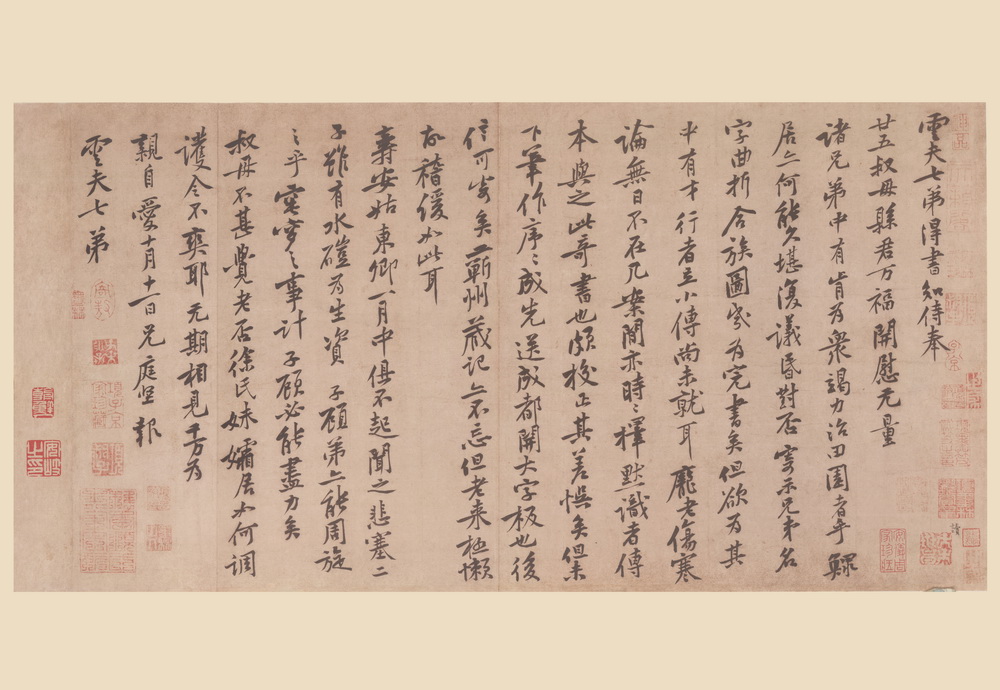 雲夫七弟得書知侍奉
廿五叔母縣君万福開慰无量
諸兄弟中有肯為衆竭力治田園者乎鰥
居亦何能久堪復議昏對否寄示兄弟名
字曲折合族圖歲為完書矣但欲為其
中有才行者立小傳尚未就耳龐老傷寒
論無日不在几案間亦時時擇默識者傳
本與之此奇書也頗校正其差悮矣但未
下筆作序序成先送成都開大字板也後
信可寄矣蘄州藏記亦不忘但老来極懶
故稽緩如此耳
壽安姑東卿一月中俱不起聞之悲塞二
子雖有水磑為生資子顧弟亦能周旋
之乎窀穸之事計子顧必能盡力矣
叔母不甚覺老否徐氏妹孀居如何調
護令不爽耶无期相見千万為
親自愛十月十一日兄庭堅報
雲夫七弟